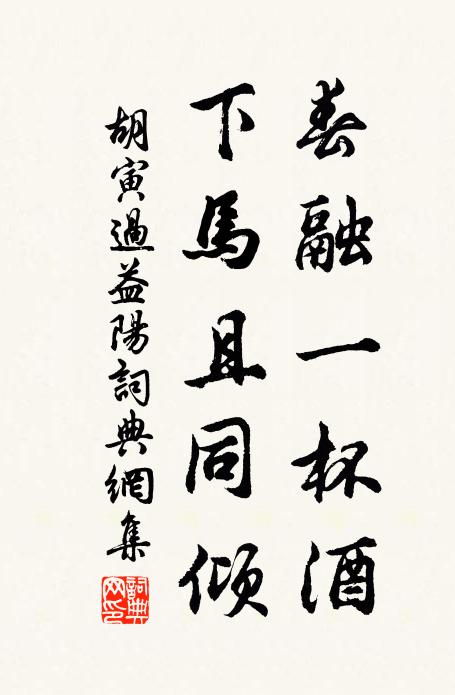 春融一杯酒
下馬且同傾
胡寅過益陽詞典網集
詞典網印